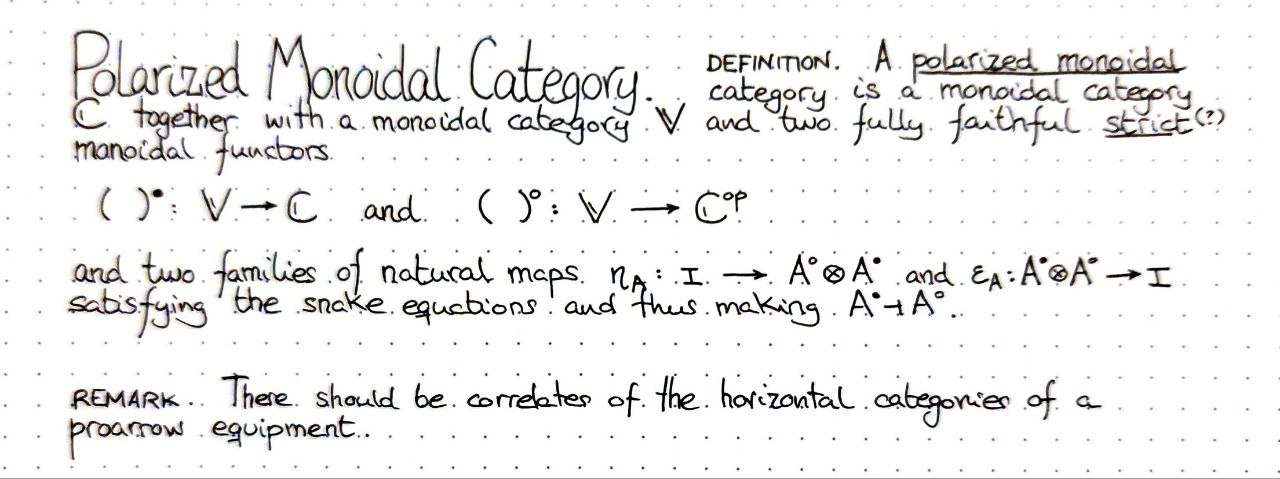 Polarized Monoidal Category. DEFINITION. A polarized monoidal
category is a monoidal category
ℂ together with a monoidal category 𝕍 and two fully faithful strict(?)
monoidal functors.
( )• : 𝕍 → ℂ and ( )° : 𝕍 → ℂᵒᵖ
and two families of natural maps η_A : I → A°⊗A• and ε_A : A•⊗A° → I
satisfying the snake equations and thus making A• ⊣ A°.
REMARK. There should be correlates of the horizontal categories of a
proarrow equipment.